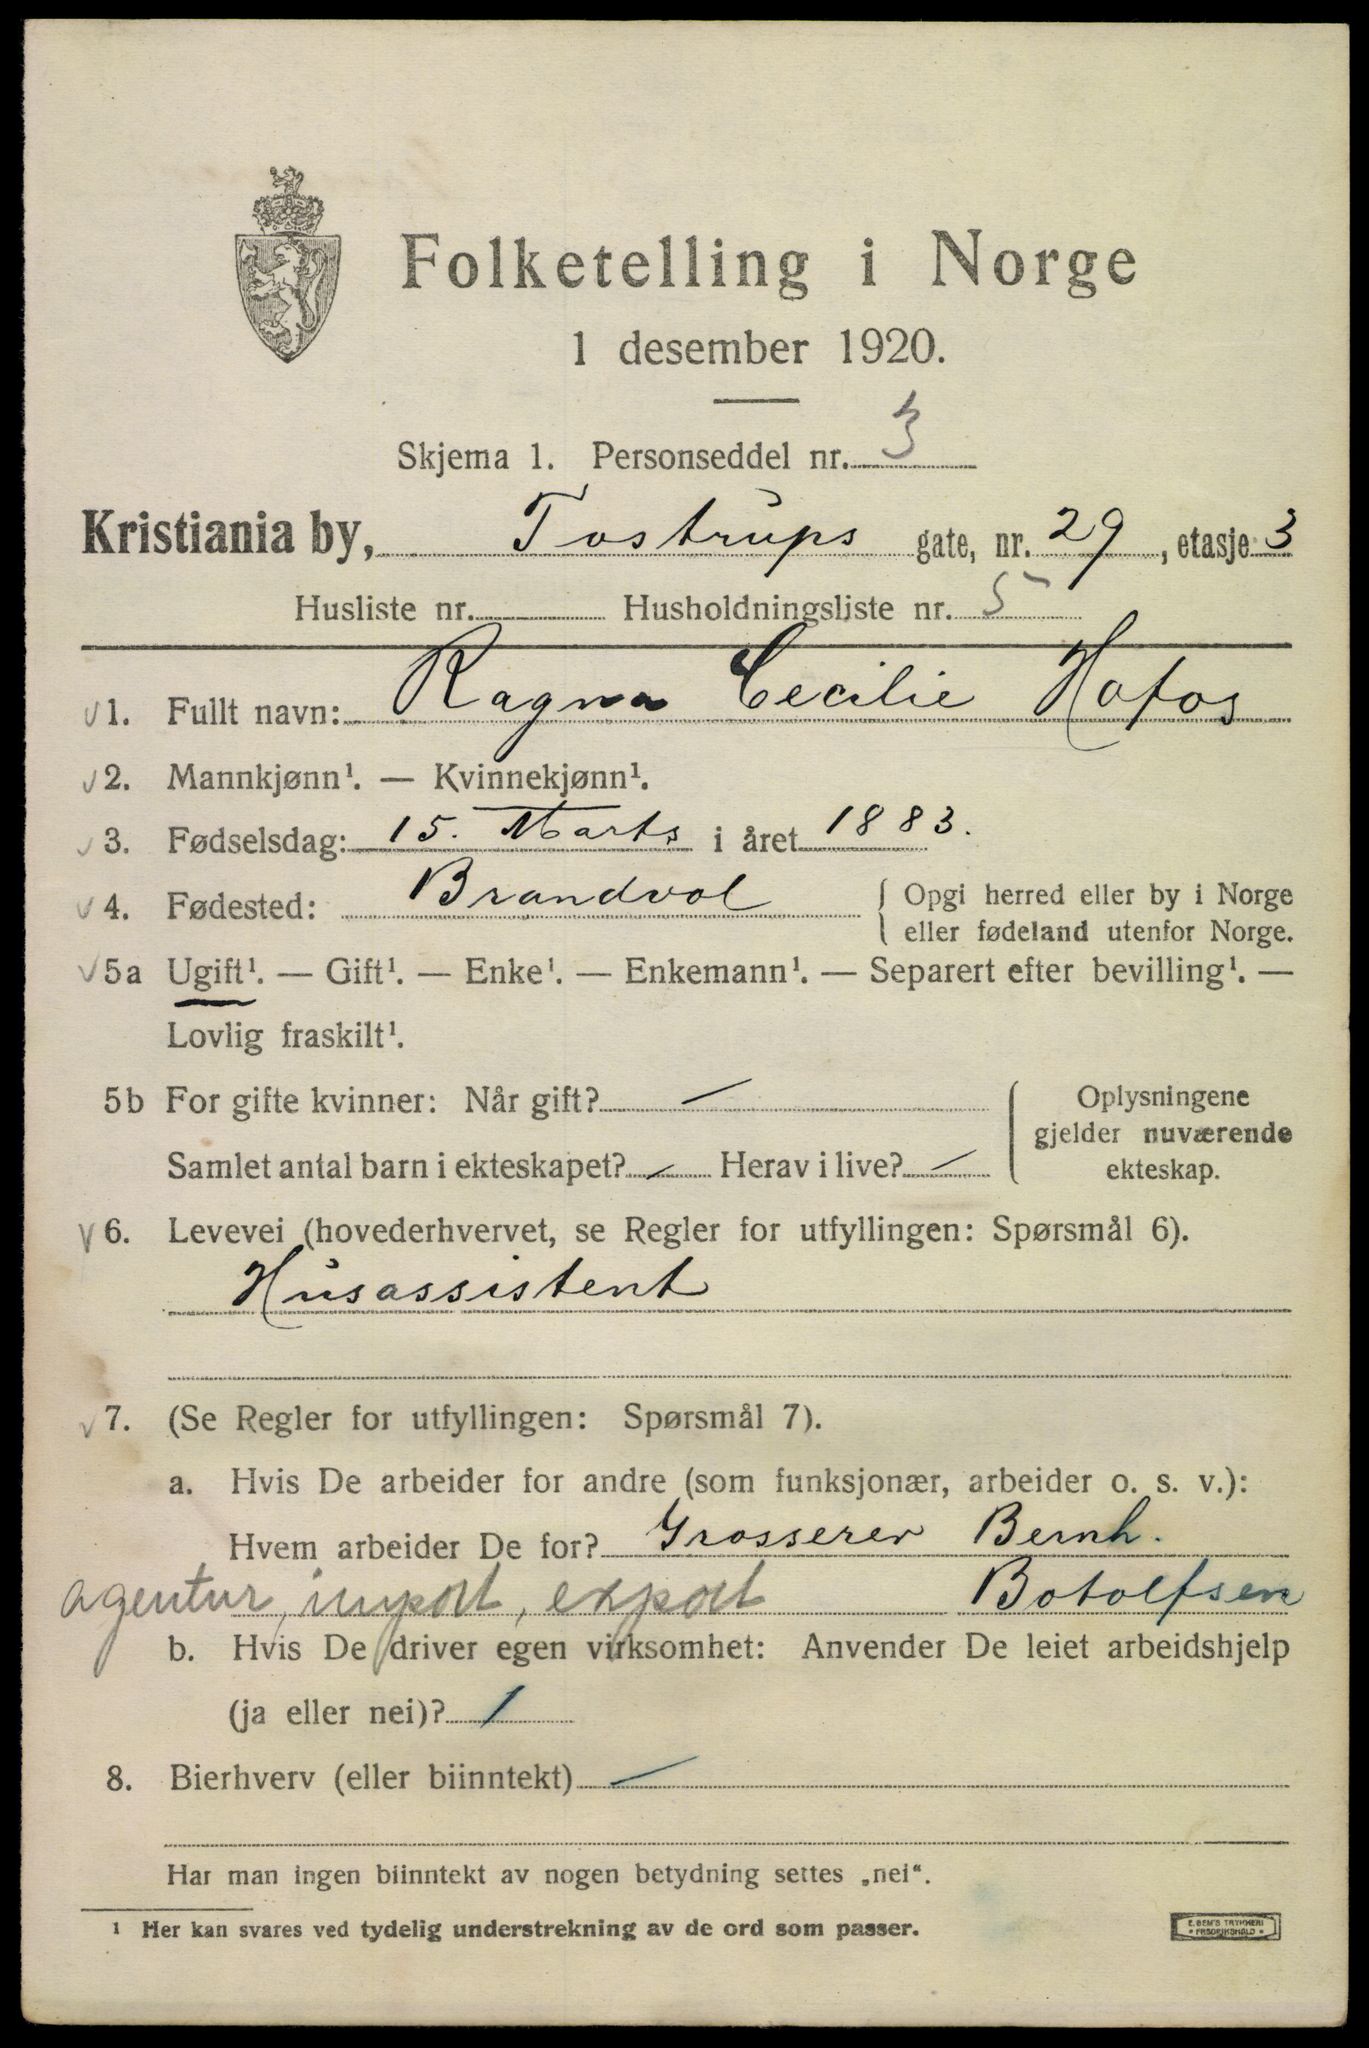 Folketelling i Norge
1 desember 1920.
Skjema 1. Personseddel nr. 3
Kristiania by, Tostrups gate, nr. 29, etasje 3
Husliste nr. Husholdningsliste nr. 5
1. Fullt navn: Ragna Cecilie Hofos
2. Mannkjønn¹. — Kvinnekjønn¹.
3. Fødselsdag: 15. Marts i året 1883.
4. Fødested: Brandvol { Opgi herred eller by i Norge
eller fødeland utenfor Norge.
5a Ugift¹. — Gift¹. — Enke¹. — Enkemann¹. — Separert efter bevilling¹. —
Lovlig fraskilt¹.
5b For gifte kvinner: Når gift? — Oplysningene
gjelder nuværende
Samlet antal barn i ekteskapet? — Herav i live? — ekteskap.
6. Levevei (hovederhvervet, se Regler for utfyllingen: Spørsmål 6).
Husassistent
7. (Se Regler for utfyllingen: Spørsmål 7).
a. Hvis De arbeider for andre (som funksjonær, arbeider o. s. v.):
Hvem arbeider De for? Grosserer Bernh.
agentur, import, export Botolfsen
b. Hvis De driver egen virksomhet: Anvender De leiet arbeidshjelp
(ja eller nei)? /
8. Bierhverv (eller biinntekt) —
Har man ingen biinntekt av nogen betydning settes „nei“.
¹ Her kan svares ved tydelig understrekning av de ord som passer.
E. SEM'S TRYKKERI
* FREDRIKSHALD *